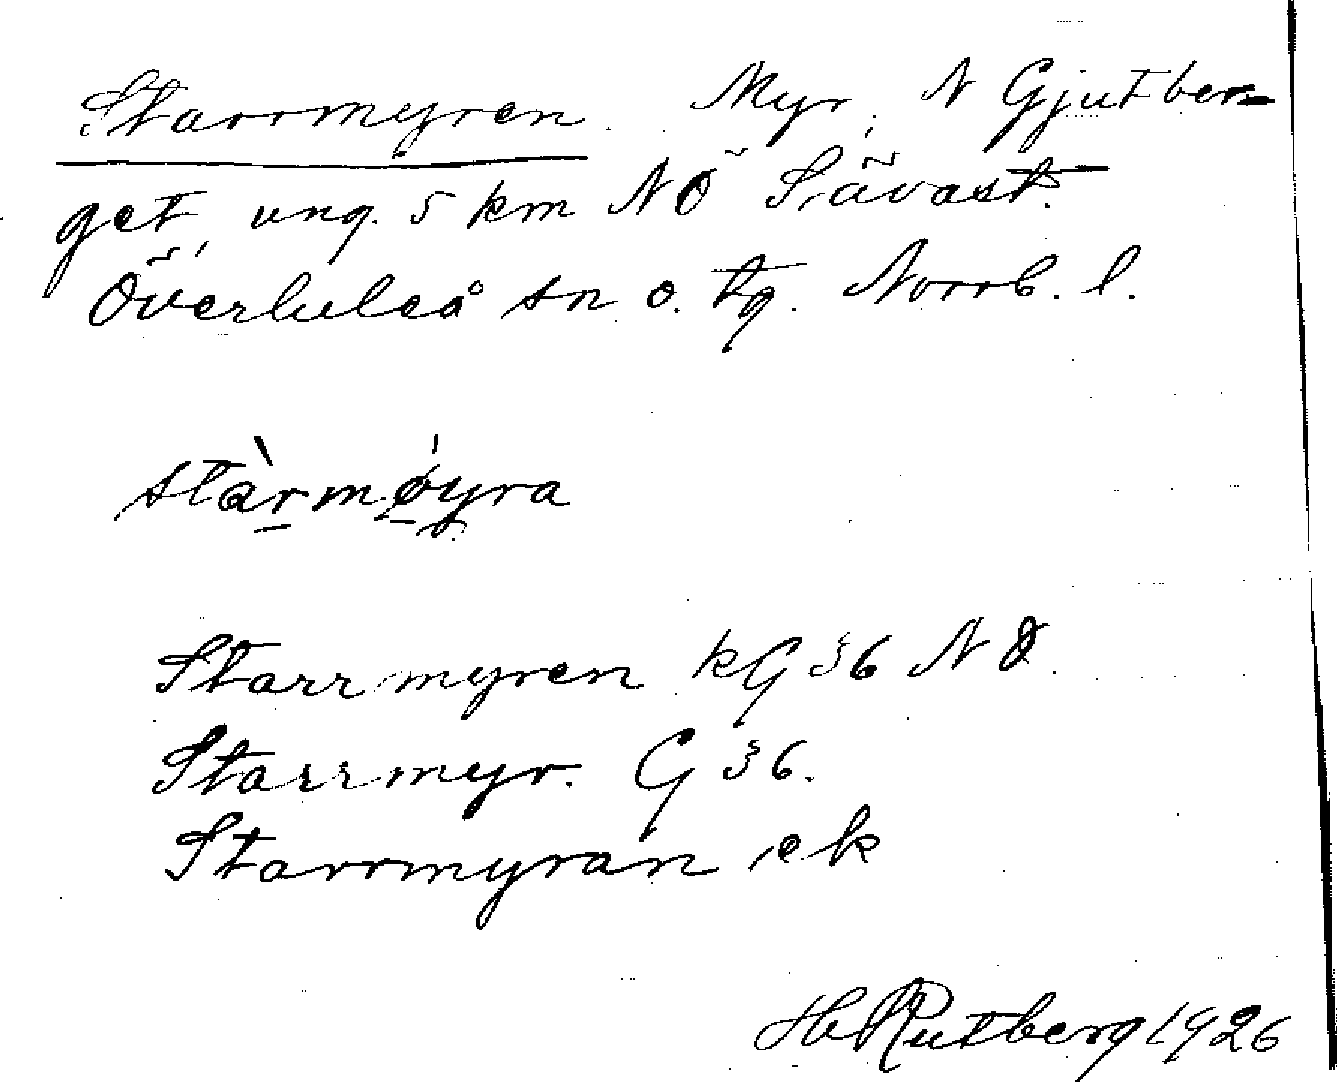 Starrmyren. Myr, N Gjutber-
get, ung. 5 km NÖ Sävast.
Överluleå sn o. tg. Norrb. l.
stàrmøyra
Starrmyren kG 36 NO
Starrmyr. G 36.
Starrmyran ek
Hb Rutberg 1926